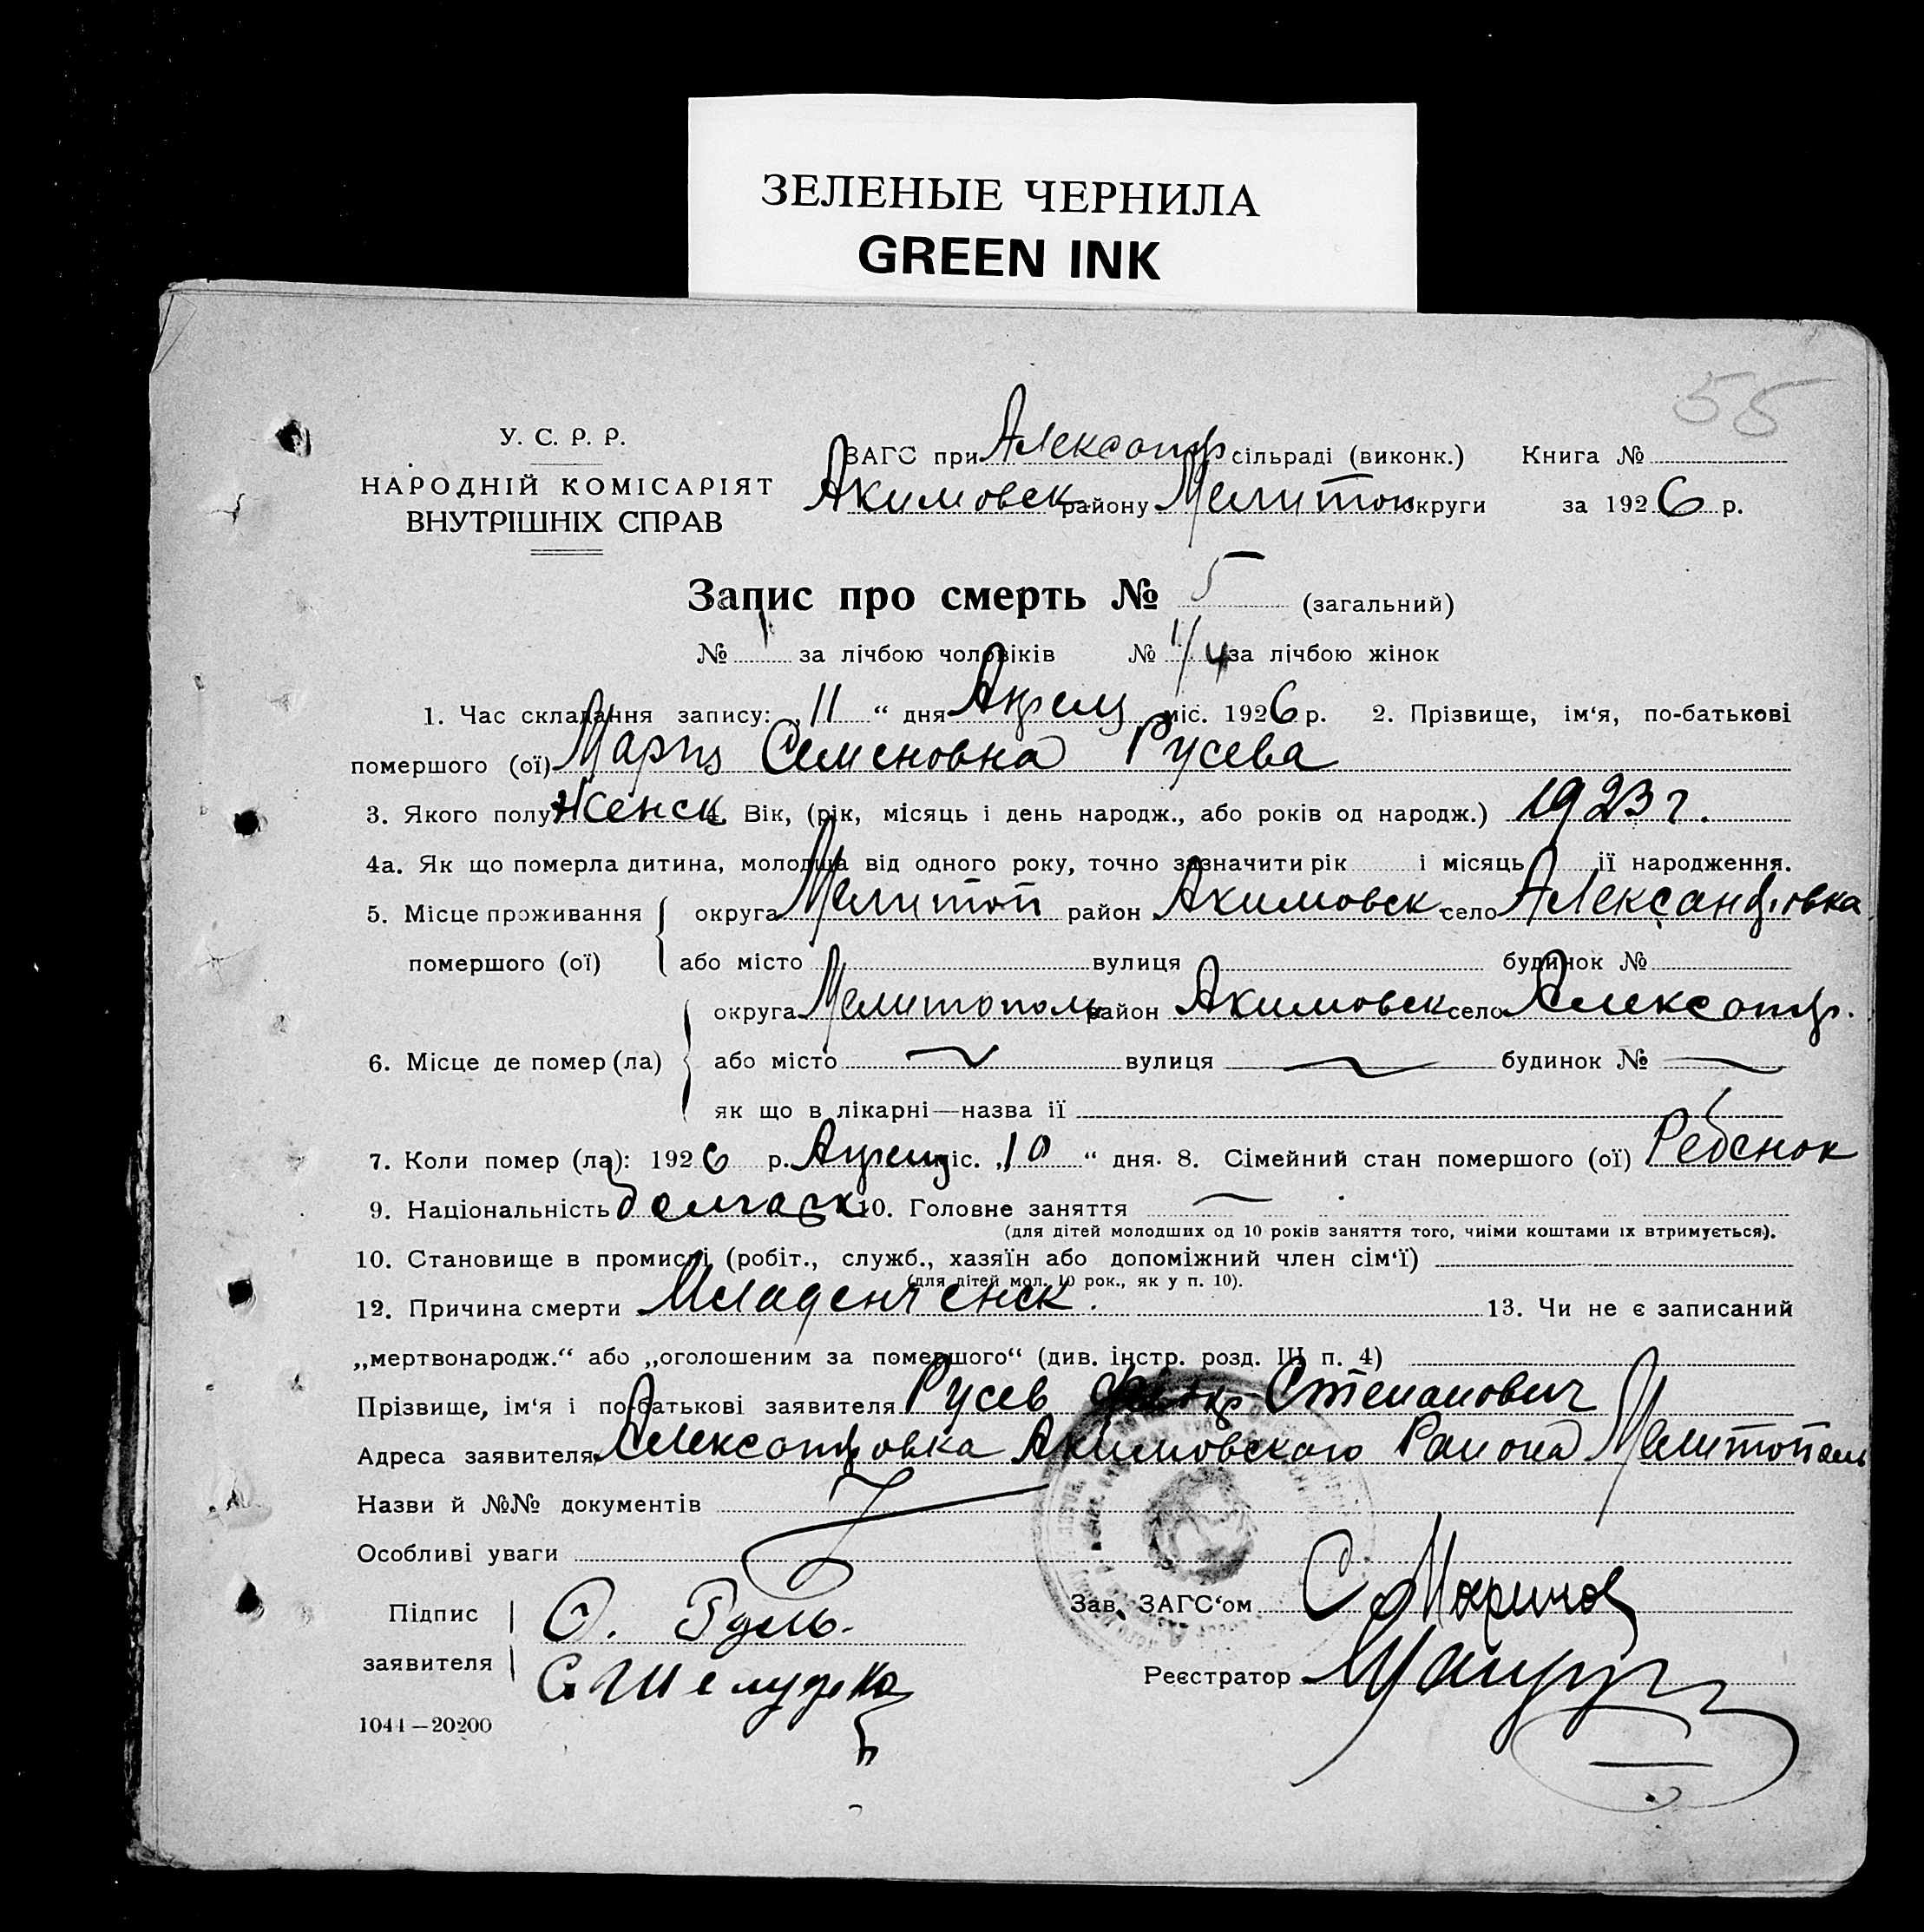 ЗЕЛЕНЫЕ ЧЕРНИЛА
GREEN INK
55
У. С. Р. Р.
НАРОДНІЙ КОМІСАРІЯТ
ВНУТРІШНІХ СПРАВ
ЗАГС при Александр сільраді (виконк.) Книга №
Акимовск району Мелитоп округи за 1926 р.
Запис про смерть № 5 (загальний)
№ за лічбою чоловіків № 1/4 за лічбою жінок
1. Час складання запису: „11“ дня Апреля міс. 1926 р. 2. Прізвище, ім‘я, по-батькові
помершого (ої) Мария Семеновна Русева
3. Якого полу Женск 4. Вік, (рік, місяць і день народж., або років од народж.) 1923 г.
4а. Як що померла дитина, молодша від одного року, точно зазначити рік і місяць ії народження.
5. Місце проживання округа Мелитоп район Акимовск село Александровка
помершого (ої) або місто вулиця будинок №
округа Мелитополь район Акимовск село Александр.
6. Місце де помер (ла) або місто вулиця будинок №
як що в лікарні—назва ії
7. Коли помер (ла): 1926 р. Апреля міс. „10“ дня. 8. Сімейний стан помершого (ої) Ребенок
9. Національність болгарк 10. Головне заняття
(для дітей молодших од 10 років заняття того, чиїми коштами їх втримується).
10. Становище в промислі (робіт., служб., хазяїн або допоміжний член сім‘ї)
(для дітей мол. 10 рок., як у п. 10).
12. Причина смерти Младенческ. 13. Чи не є записаний
„мертвонародж.“ або „оголошеним за помершого“ (див. інстр. розд. III п. 4)
Прізвище, ім‘я і по-батькові заявителя Русев Степанович
Адреса заявителя Александровка Акимовского Района Мелитополь
Назви й №№ документів
Особливі уваги
Підпис Зав. ЗАГС‘ом С Маринов
заявителя Реєстратор
1044—20200